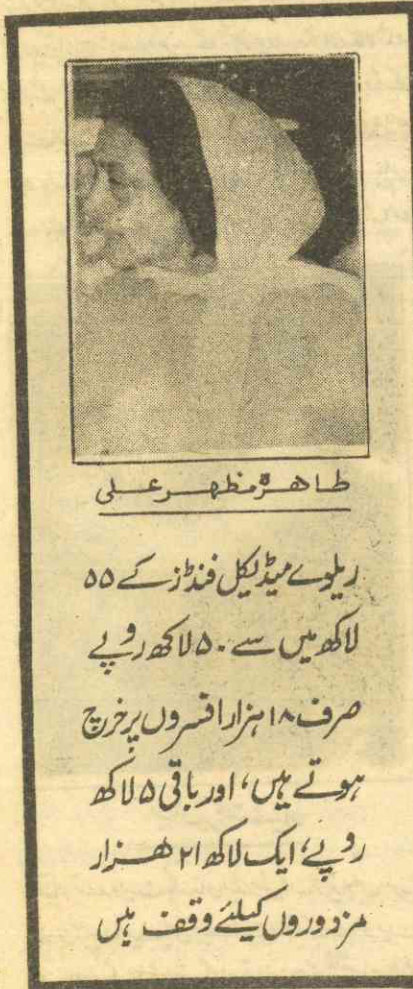 طاہرہ مظہر علی
ریلوے میڈیکل فنڈز کے ۵۵
لاکھ میں سے ۵۰ لاکھ روپے
صرف ۱۸ ہزار افسروں پر خرچ
ہوتے ہیں، اور باقی ۵ لاکھ
روپے، ایک لاکھ ۲۱ ھزار
مزدوروں کیلئے وقف ہیں